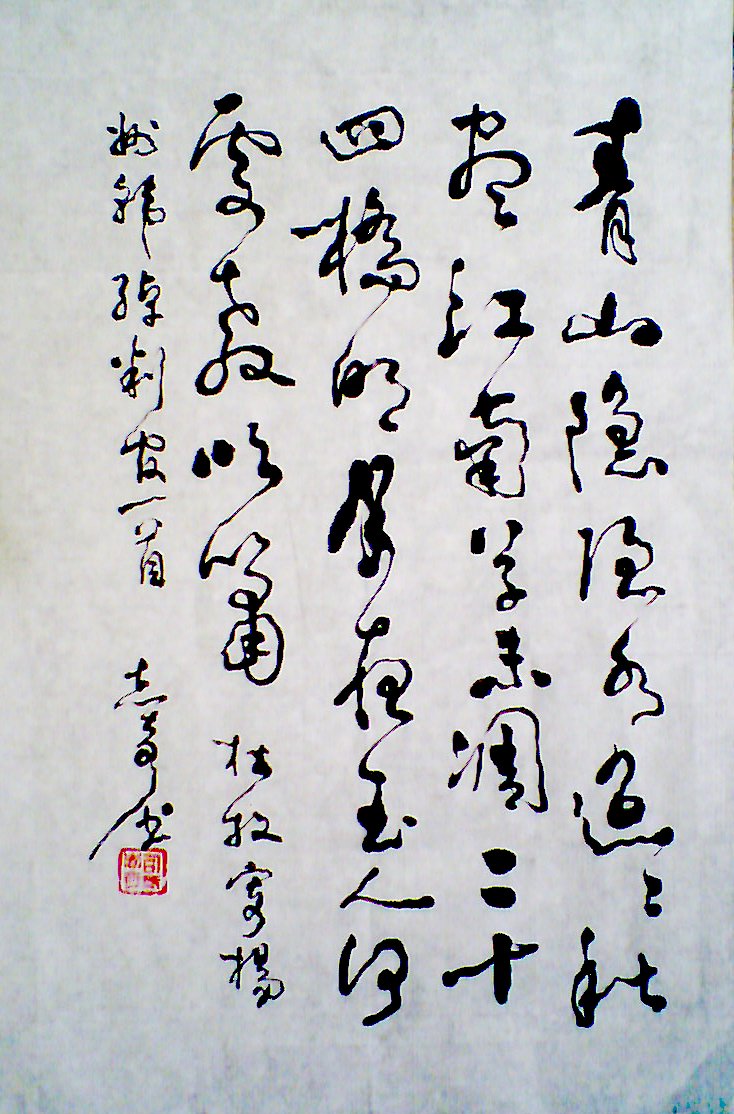 青山隐隐水遥々秋
尽江南草未凋二十
四橋明月夜玉人何
处教吹箫 杜牧寄揚
州韩绰判官一首 志奇书